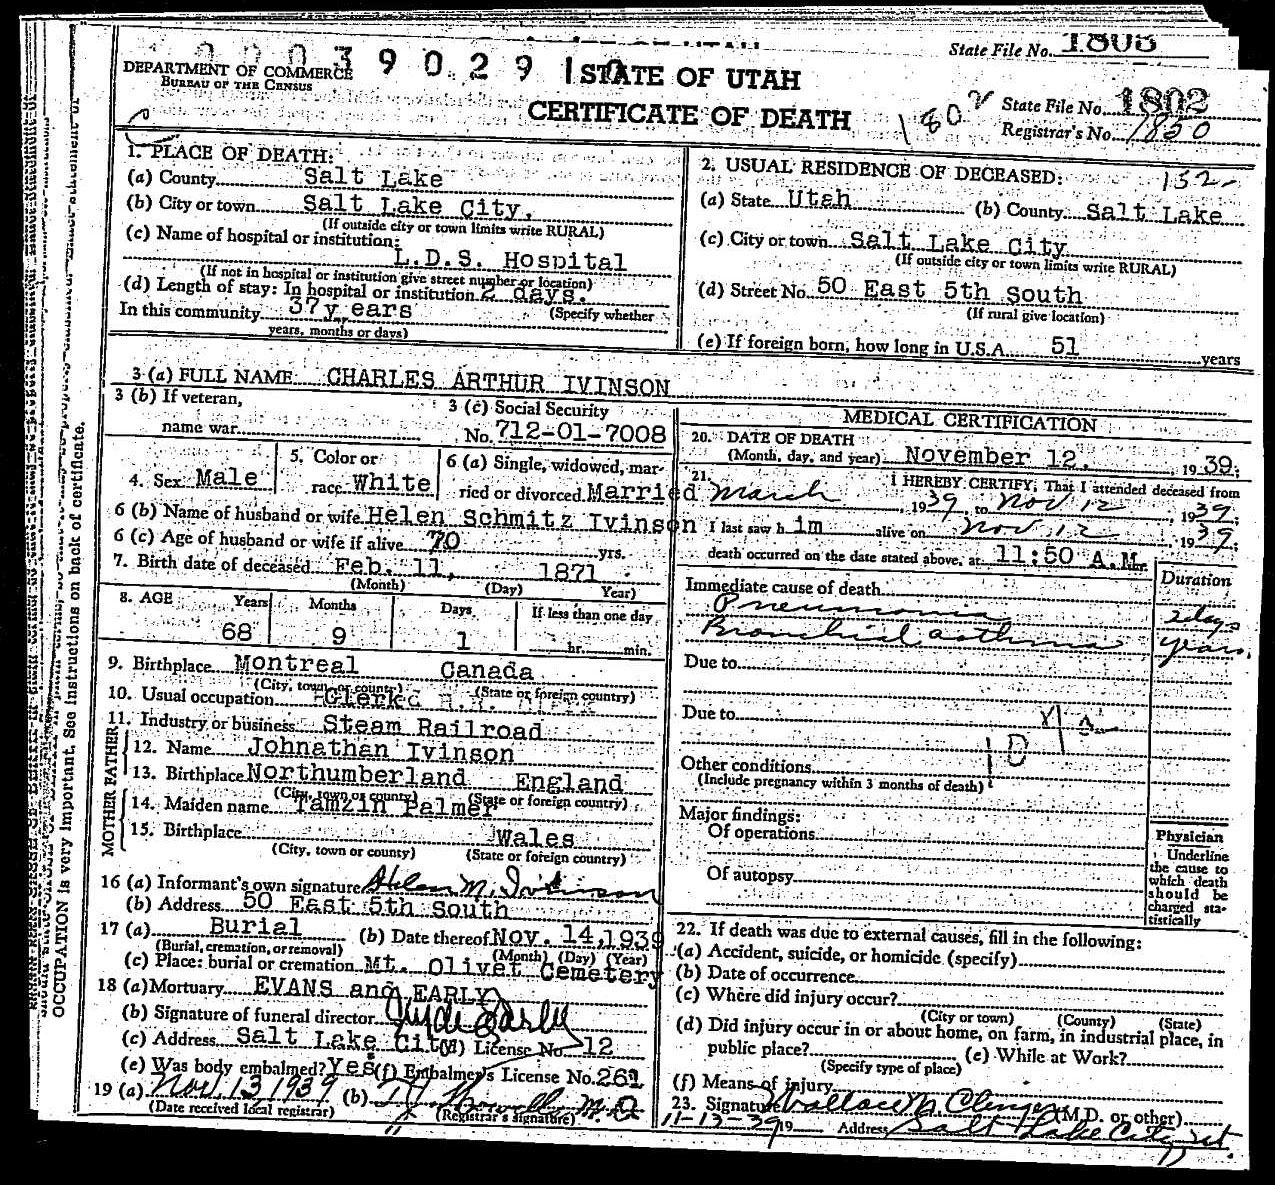 State File No. 1803
39029
DEPARTMENT OF COMMERCE
BUREAU OF THE CENSUS
STATE OF UTAH
CERTIFICATE OF DEATH
1802
State File No. 1802
Registrar's No. 1850
1. PLACE OF DEATH:
(a) County Salt Lake
(b) City or town Salt Lake City,
(If outside city or town limits write RURAL)
(c) Name of hospital or institution:
L.D.S. Hospital
(If not in hospital or institution give street number or location)
(d) Length of stay: In hospital or institution 2 days.
In this community 37 years (Specify whether
years, months or days)
2. USUAL RESIDENCE OF DECEASED: 132-
(a) State Utah (b) County Salt Lake
(c) City or town Salt Lake City
(If outside city or town limits write RURAL)
(d) Street No. 50 East 5th South
(If rural give location)
(e) If foreign born, how long in U.S.A. 51 years
3 (a) FULL NAME CHARLES ARTHUR IVINSON
3 (b) If veteran,
name war
3 (c) Social Security
No. 712-01-7008
4. Sex Male
5. Color or
race White
6 (a) Single, widowed, mar-
ried or divorced Married
6 (b) Name of husband or wife Helen Schmitz Ivinson
6 (c) Age of husband or wife if alive 70 yrs.
7. Birth date of deceased Feb. 11, 1871
(Month) (Day) Year)
8. AGE Years Months Days If less than one day
68 9 1 hr. min.
9. Birthplace Montreal Canada
(City, town or county) (State or foreign country)
10. Usual occupation Clerk
11. Industry or business Steam Railroad
FATHER
12. Name Johnathan Ivinson
13. Birthplace Northumberland England
(City, town or county) (State or foreign country)
MOTHER
14. Maiden name Tamzin Palmer
15. Birthplace Wales
(City, town or county) (State or foreign country)
16 (a) Informant's own signature Helen M. Ivinson
(b) Address 50 East 5th South
17 (a) Burial (b) Date thereof Nov. 14, 1939
(Burial, cremation, or removal) (Month) (Day) (Year)
(c) Place: burial or cremation Mt. Olivet Cemetery
18 (a) Mortuary EVANS and EARLY
(b) Signature of funeral director Clyde Early
(c) Address Salt Lake City (d) License No. 12
(e) Was body embalmed? Yes (f) Embalmer's License No. 261
19 (a) Nov. 13, 1939 (b) M.D.
(Date received local registrar) (Registrar's signature)
MEDICAL CERTIFICATION
20. DATE OF DEATH
(Month, day, and year) November 12, 1939;
21. I HEREBY CERTIFY, That I attended deceased from
March, 1939, to Nov 12, 1939;
I last saw h im alive on Nov 12 1939;
death occurred on the date stated above, at 11:50 A.M.
Duration
Immediate cause of death
Pneumonia 2 days
Bronchial asthma years.
Due to
Due to
Other conditions
(Include pregnancy within 3 months of death)
Major findings:
Of operations
Of autopsy
Physician
Underline
the cause to
which death
should be
charged sta-
tistically
22. If death was due to external causes, fill in the following:
(a) Accident, suicide, or homicide (specify)
(b) Date of occurrence
(c) Where did injury occur?
(City or town) (County) (State)
(d) Did injury occur in or about home, on farm, in industrial place, in
public place? (e) While at Work?
(Specify type of place)
(f) Means of injury
23. Signature Wallace M. Clinger (M.D. or other)
11-13-39 19 Address Salt Lake City, Ut.
OCCUPATION is very important. See instructions on back of certificate.